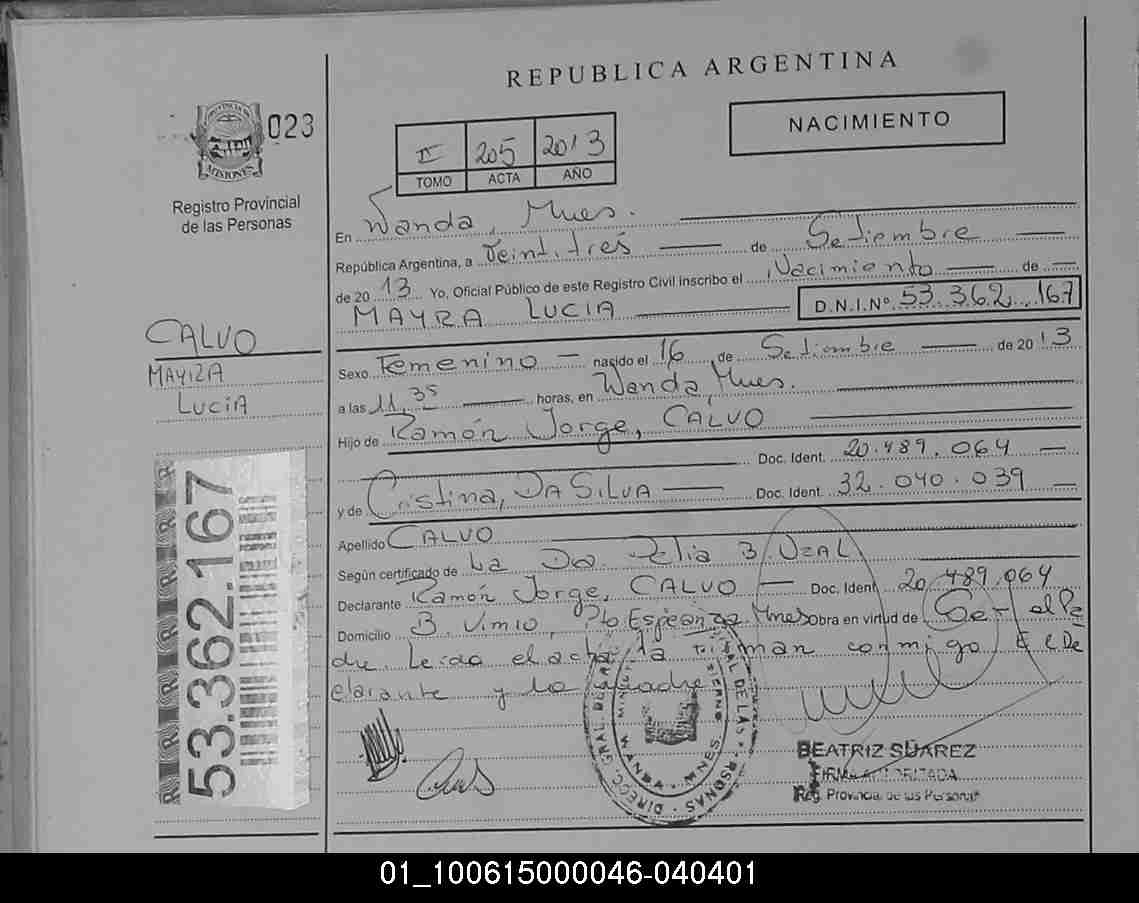 REPUBLICA ARGENTINA
NACIMIENTO
PROVINCIA DE
MISIONES
023
Registro Provincial
de las Personas
II 205 2013
TOMO ACTA AÑO
En Wanda, Mnes.
República Argentina, a Veintitrés de Setiembre
de 2013 Yo, Oficial Público de este Registro Civil inscribo el Nacimiento de
MAYRA LUCIA D.N.I.Nº 53.362.167
CALVO
MAYRA
LUCIA
Sexo Femenino nacido el 16 de Setiembre de 2013
a las 11,35 horas, en Wanda, Mnes.
Hijo de Ramón Jorge, CALVO
Doc. Ident. 20.489.064
y de Cristina, DA SILVA Doc. Ident. 32.040.039
Apellido CALVO
Según certificado de La Dra. Delia B. UZAL
Declarante Ramón Jorge, CALVO Doc. Ident. 20.489.064
Domicilio B. Vimio, Pto Esperanza Mnes Obra en virtud de Ser el Pa
dre. Leída el acta, la firman conmigo El De
clarante y la Madre
53.362.167
DIRECC. GRAL. DEL REG. PERSONAS
WANDA - MNES
BEATRIZ SUAREZ
FIRMA AUTORIZADA
Reg. Provincial de las Personas
01_100615000046-040401